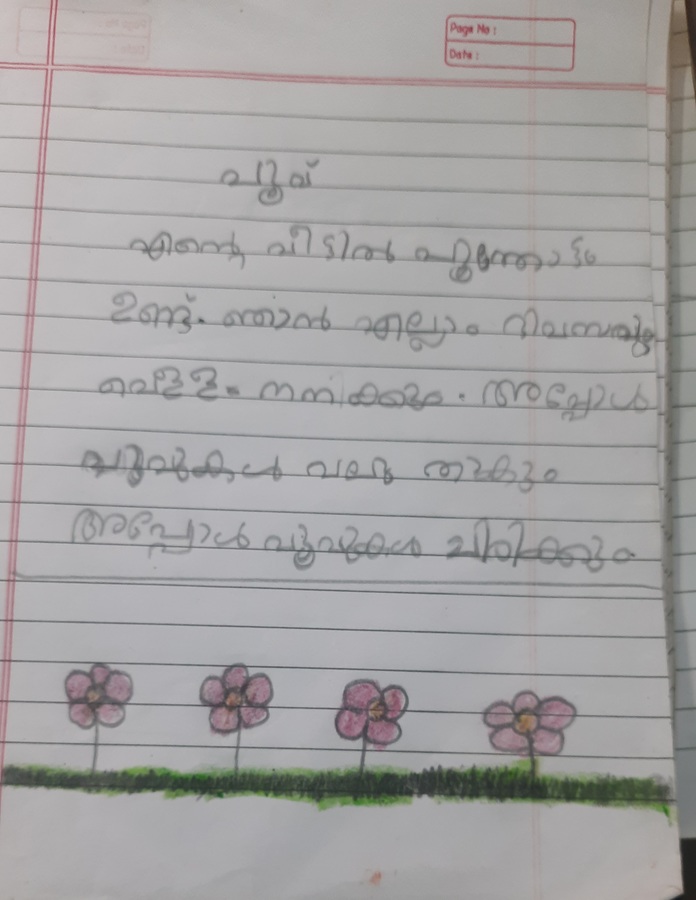 Page No :
Date :
പൂവ്
എന്റെ വീട്ടിൽ പൂന്തോട്ടം
ഉണ്ട്. ഞാൻ എല്ലാം
വെള്ളം നനക്കും. അപ്പോൾ
പൂവുകൾ വലുതാകും
അപ്പോൾ പൂവുകൾ ചിരിക്കും